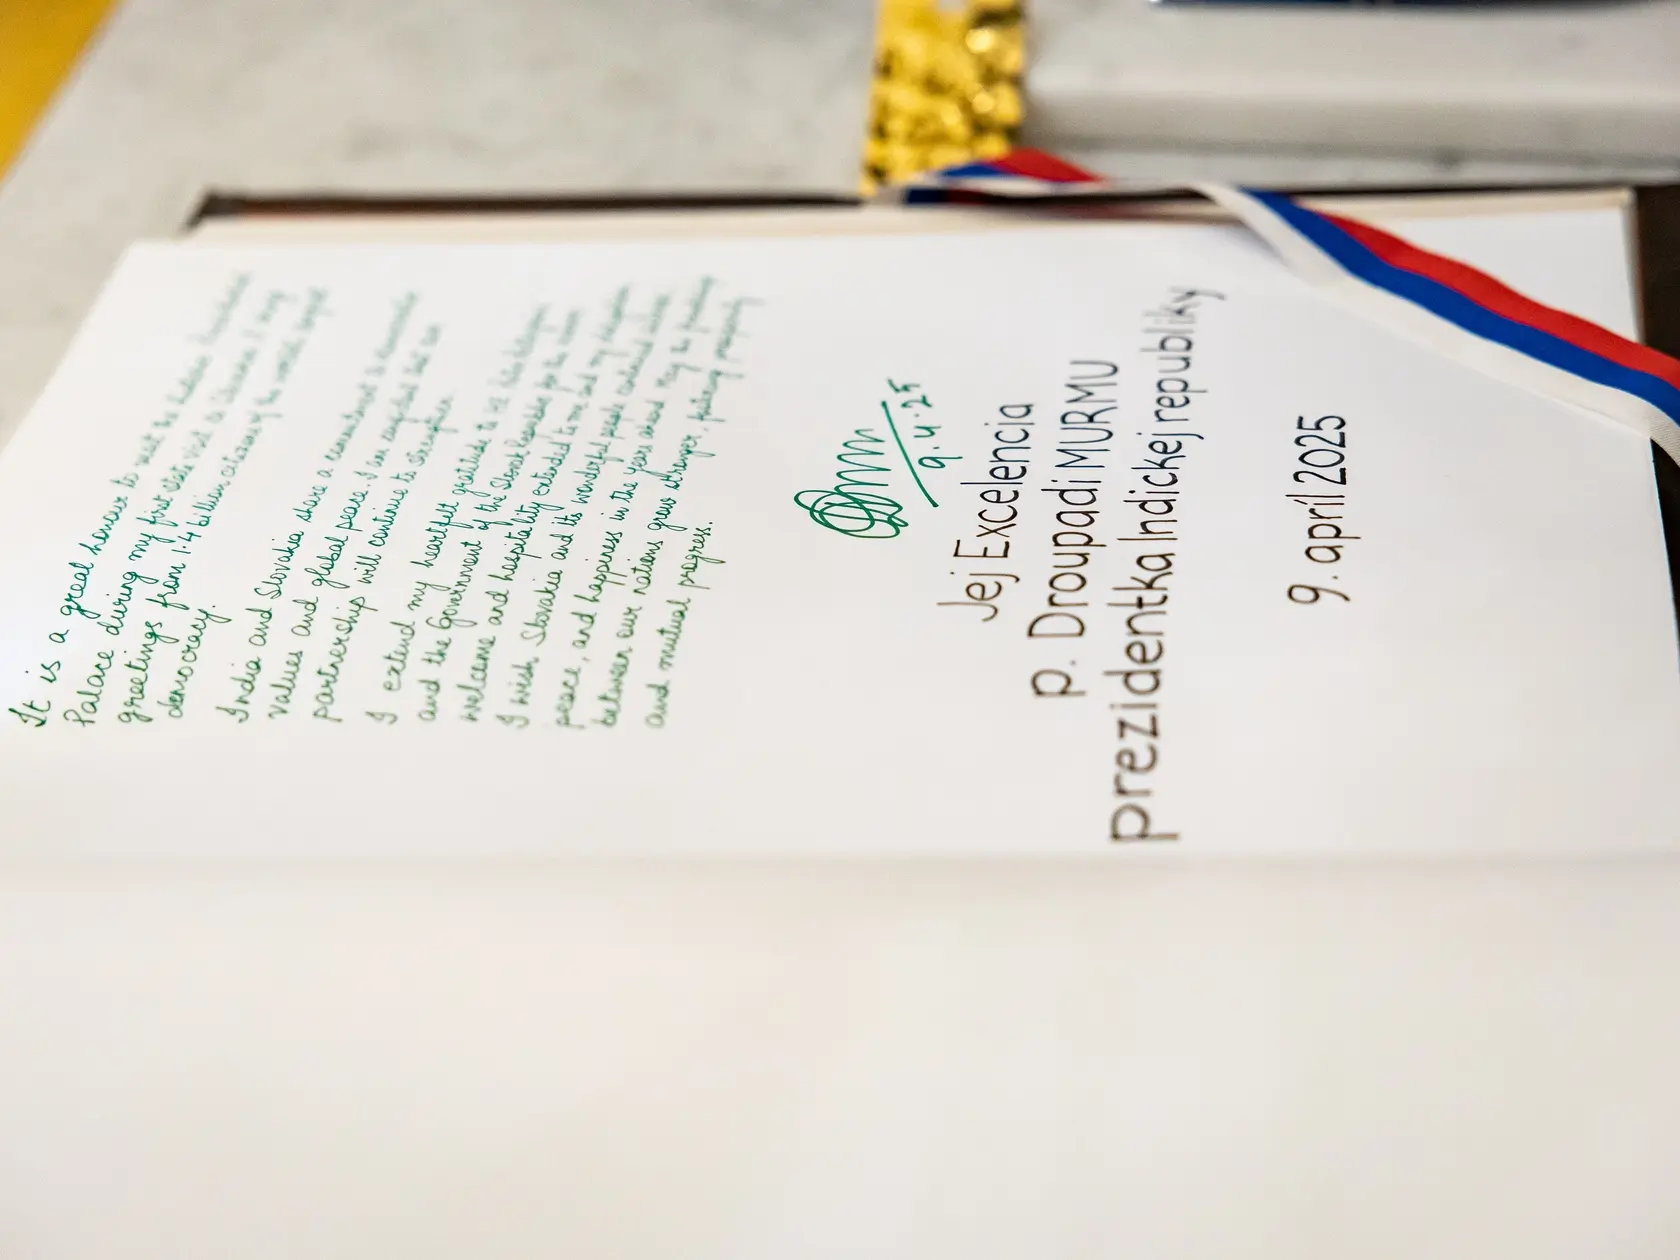 It is a great honour to visit the historic Presidential
Palace during my first state visit to Slovakia. I bring
greetings from 1.4 billion citizens of the world's largest
democracy.
India and Slovakia share a commitment to democratic
values and global peace. I am confident that our
partnership will continue to strengthen.
I extend my heartfelt gratitude to H.E.
and the Government of the Slovak Republic for the warm
welcome and hospitality extended to me and my delegation.
I wish Slovakia and its wonderful people continued success,
peace, and happiness in the years ahead. May the friendship
between our nations grow stronger, fostering prosperity
and mutual progress.
9.4.25
Jej Excelencia
p. Droupadi MURMU
prezidentka Indickej republiky
9. apríl 2025